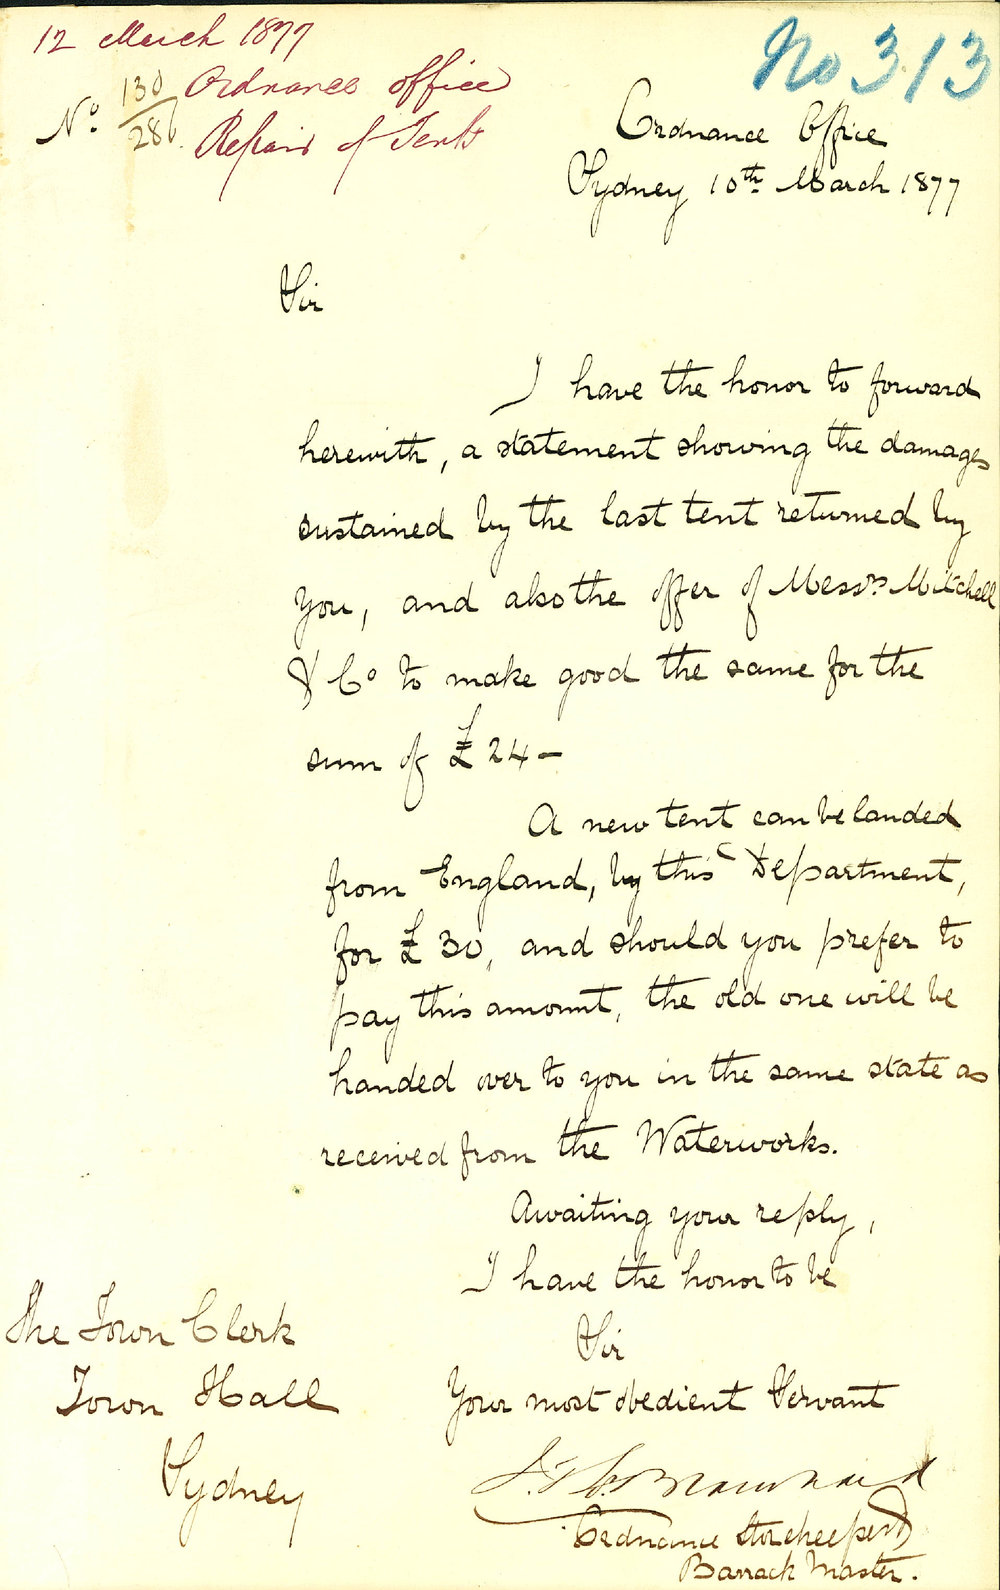 12 March 1877
No 313
Nº 130/286
Ordnance office
Repair of Tents
Ordnance Office
Sydney 10th March 1877
Sir
I have the honor to forward
herewith, a statement showing the damages
sustained by the last tent returned by
you, and also the offer of Messrs Mitchell
& Co to make good the same for the
sum of £24 –
A new tent can be landed
from England, by this Department,
for £30, and should you prefer to
pay this amount, the old one will be
handed over to you in the same state as
received from the Waterworks.
Awaiting your reply,
I have the honor to be
Sir
Your most obedient Servant
Ordnance Storekeeper &
Barrack Master.
The Town Clerk
Town Hall
Sydney